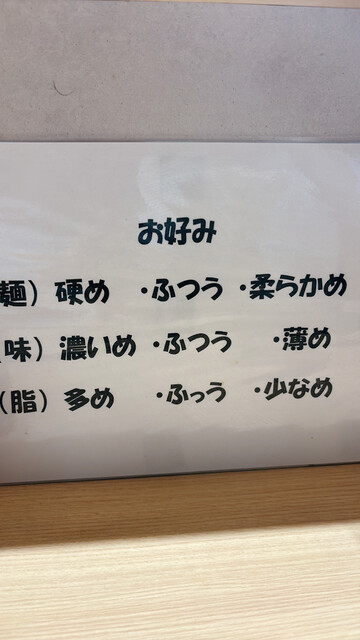 お好み
麺）硬め ・ふつう ・柔らかめ
味）濃いめ ・ふつう ・薄め
（脂）多め ・ふっう ・少なめ